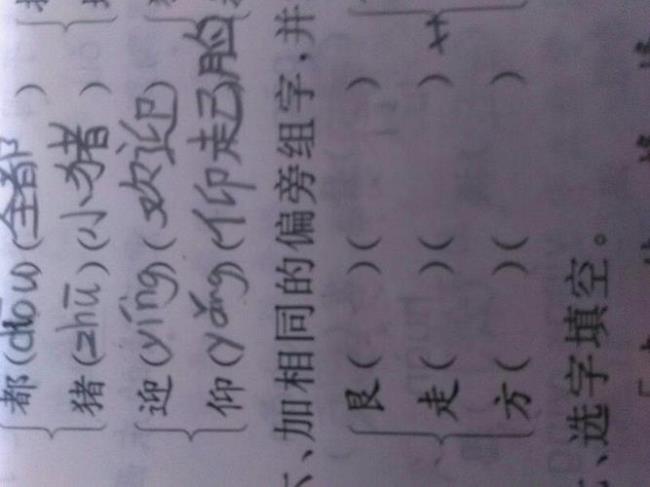 都(dōu)(全都)
猪(zhū)(小猪)
迎(yíng)(欢迎)
仰(yǎng)(仰起脸)
六、加相同的偏旁组字,并
艮( )( )
走( )( )
方( )( )
七、选字填空。